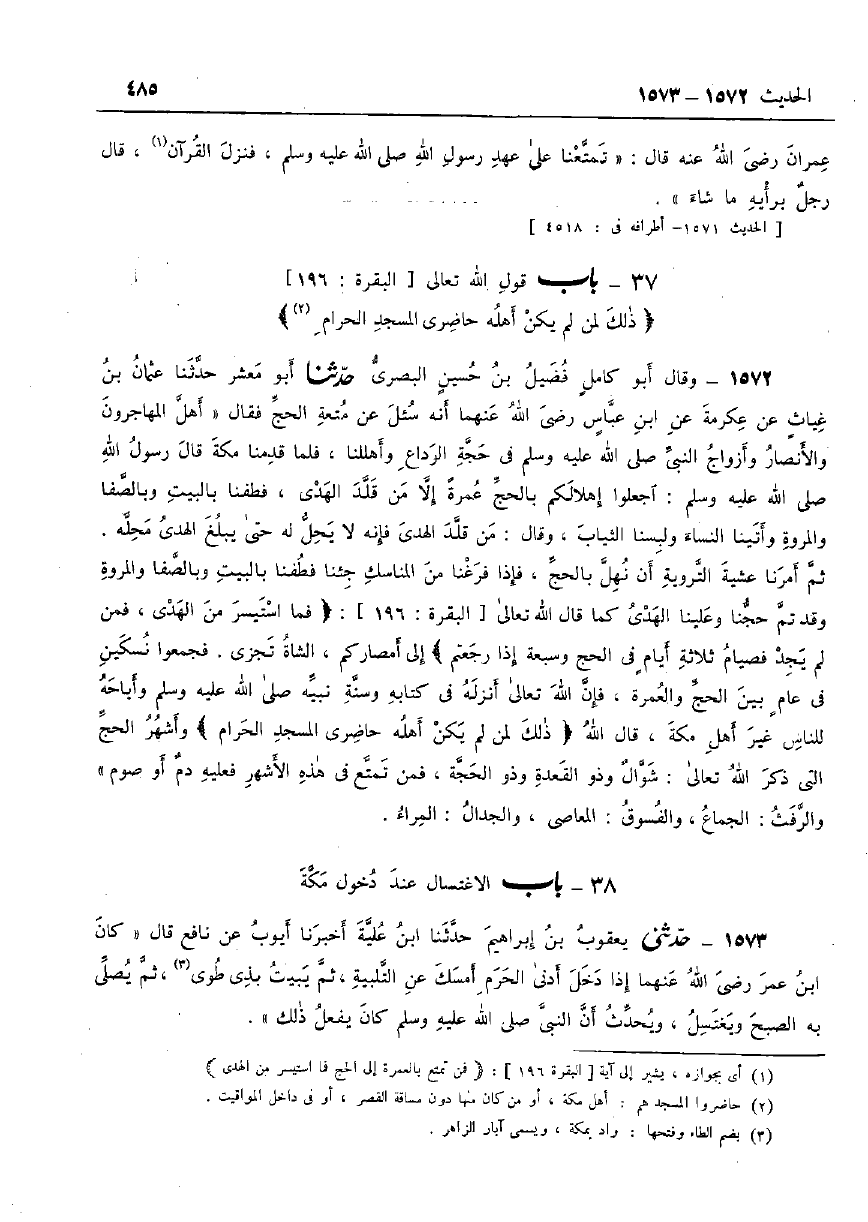 الحديث ١٥٧٢ – ١٥٧٣
٤٨٥
عِمرانَ رضىَ اللهُ عنه قال : « تَمتَّعْنا علىٰ عهدِ رسولِ اللهِ صلى الله عليه وسلم ، فنزلَ القُرآن(١) ، قال
رجلٌ برأيهِ ما شاءَ » .
[ الحديث ١٥٧١– أطرافه فى : ٤٥١٨ ]
٣٧ – باب قولِ الله تعالى [ البقرة : ١٩٦ ]
﴿ ذٰلكَ لمن لم يكنْ أهلُه حاضِرى المسجدِ الحرام (٢) ﴾
١٥٧٢ – وقال أبو كاملٍ فُضَيلُ بنُ حُسينٍ البصرىُّ حدّثنا أبو مَعشر حدَّثَنا عثمانُ بنُ
غِياثٍ عن عِكرمةَ عنِ ابنِ عبَّاسٍ رضىَ اللهُ عَنهما أنه سُئلَ عن مُتعةِ الحجِّ فقال « أهلَّ المهاجرونَ
والأنصارُ وأزواجُ النبىِّ صلى الله عليه وسلم فى حَجَّةِ الوَداعِ وأهللنا ، فلما قدِمنا مكةَ قالَ رسولُ اللهِ
صلى الله عليه وسلم : آجعلوا إهلالَكم بالحجِّ عُمرةً إلَّا مَن قلَّدَ الهَدْى ، فطفنا بالبيتِ وبالصَّفا
والمروةِ وأتَينا النساءَ ولبِسنا الثيابَ ، وقال : مَن قلَّدَ الهدىَ فإنه لا يَحِلُّ له حتىٰ يبلُغَ الهدىُ مَحِلَّه .
ثمَّ أمرَنا عشيةَ التَّرويةِ أن نُهِلَّ بالحجِّ ، فإذا فرَغْنا منَ المناسكِ جِئنا فطُفنا بالبيتِ وبالصَّفا والمروةِ
وقد تمَّ حجُّنا وعَلينا الهَدْىُ كما قال الله تعالىٰ [ البقرة : ١٩٦ ] : ﴿ فما اسْتَيسرَ منَ الهَدْى ، فمن
لم يَجِدْ فصيامُ ثلاثةِ أيامٍ فى الحج وسبعة إذا رجَعتم ﴾ إلى أمصاركم ، الشاةُ تَجزى . فجمعوا نُسكَينِ
فى عامٍ بينَ الحجِّ والعُمرة ، فإنَّ اللهَ تعالىٰ أنزلَهُ فى كتابهِ وسنَّةِ نبيِّه صلى الله عليه وسلم وأباحَهُ
للناسِ غيرَ أهلِ مكةَ ، قال اللهُ ﴿ ذٰلكَ لمن لم يَكنْ أهلُه حاضِرى المسجدِ الحَرام ﴾ وأشهُرُ الحجِّ
التى ذكرَ اللهُ تعالىٰ : شَوَّالٌ وذو القَعدةِ وذو الحَجَّة ، فمن تَمتَّع فى هٰذِهِ الأشهرِ فعليهِ دمٌ أو صوم »
والرَّفَثُ : الجماعُ ، والفُسوقُ : المعاصى ، والجدالُ : المِراءُ .
٣٨ – باب الاغتسال عندَ دُخول مَكَّةَ
١٥٧٣ – حدّثنى يعقوبُ بنُ إبراهيمَ حدَّثَنا ابنُ عُليَّةَ أخبرَنا أيوبُ عن نافع قال « كانَ
ابنُ عمرَ رضىَ اللهُ عَنهما إذا دَخَلَ أدنىٰ الحَرَمِ أمسَكَ عنِ التَّلبيةِ ، ثمَّ يَبيتُ بذِى طُوى(٣) ، ثمَّ يُصلِّى
به الصبحَ ويَغتَسِلُ ، ويُحدِّثُ أنَّ النبىَّ صلى الله عليه وسلم كانَ يفعلُ ذٰلك » .
(١) أى بجوازه ، يشير إلى آية [ البقرة ١٩٦ ] : ﴿ فمن تمتع بالعمرة إلى الحج فما استيسر من الهدى ﴾
(٢) حاضروا المسجد هم : أهل مكة ، أو من كان منها دون مسافة القصر ، أو فى داخل المواقيت .
(٣) بضم الطاء وفتحها : واد بمكة ، ويسمى آبار الزاهر .